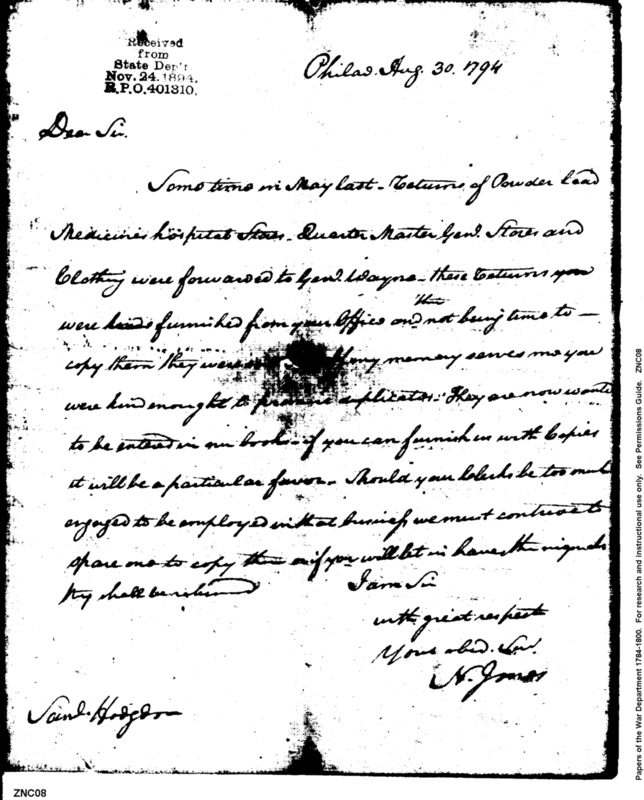 Received
from
State Dep't
Nov. 24. 1894.
R.P.O. 401310.
Philad. Aug. 30. 1794
Dear Sir.
Some time in May last - Returns of Powder Lead
Medicines hospital Stores - Quarter Master Genl. Stores and
Clothing were forwarded to Genl. Wayne - these Returns you
were kind furnished from your Office and not being time to -
then
copy them they were if my memory serves me you
were kind enought to promise duplicates. They are now wanted
to be entered in our books - if you can furnish us with Copies
it will be a particular favor - Should your Clerks be too much
engaged to be employed in that business we must contrive to
spare one to copy them or if you will let us have the originals
they shall be returned
I am Sir
with great respect
Your obed. Ser.
N. Jones
Saml. Hodgdon
ZNC08
Papers of the War Department 1784-1800. For research and instructional use only. See Permissions Guide. ZNC08